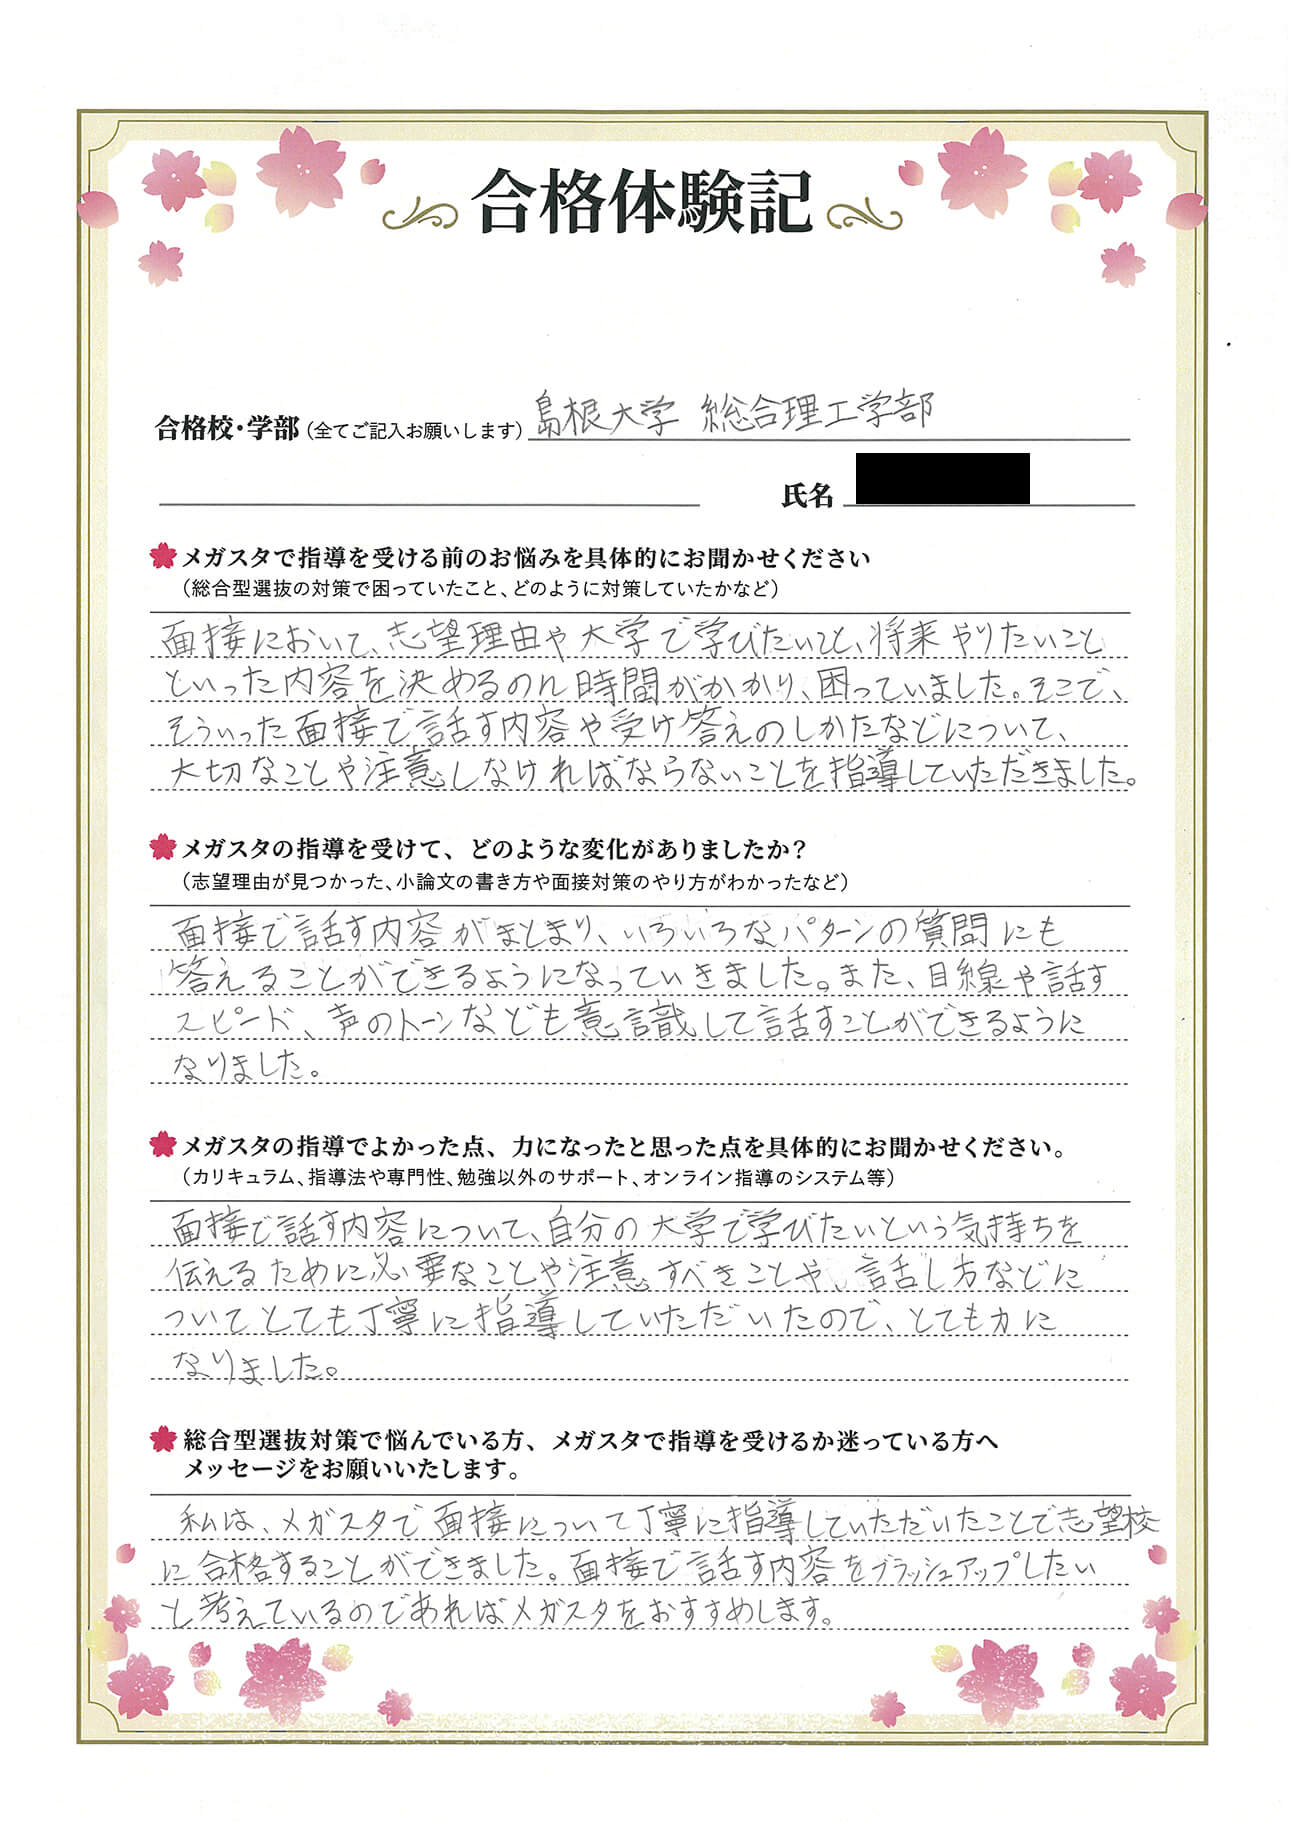 合格体験記
合格校・学部（全てご記入お願いします） 島根大学 総合理工学部
氏名
メガスタで指導を受ける前のお悩みを具体的にお聞かせください
（総合型選抜の対策で困っていたこと、どのように対策していたかなど）
面接において、志望理由や大学で学びたいこと、将来やりたいこと
といった内容を決めるのに時間がかかり、困っていました。そこで、
そういった面接で話す内容や受け答えのしかたなどについて、
大切なことや注意しなければならないことを指導していただきました。
メガスタの指導を受けて、どのような変化がありましたか？
（志望理由が見つかった、小論文の書き方や面接対策のやり方がわかったなど）
面接で話す内容がまとまり、いろいろなパターンの質問にも
答えることができるようになっていきました。また、目線や話す
スピード、声のトーンなども意識して話すことができるように
なりました。
メガスタの指導でよかった点、力になったと思った点を具体的にお聞かせください。
（カリキュラム、指導法や専門性、勉強以外のサポート、オンライン指導のシステム等）
面接で話す内容について、自分の大学で学びたいという気持ちを
伝えるために必要なことや注意すべきことや、話し方などに
ついてとても丁寧に指導していただいたので、とても力に
なりました。
総合型選抜対策で悩んでいる方、メガスタで指導を受けるか迷っている方へ
メッセージをお願いいたします。
私は、メガスタで面接について丁寧に指導していただいたことで志望校
に合格することができました。面接で話す内容をブラッシュアップしたい
と考えているのであればメガスタをおすすめします。